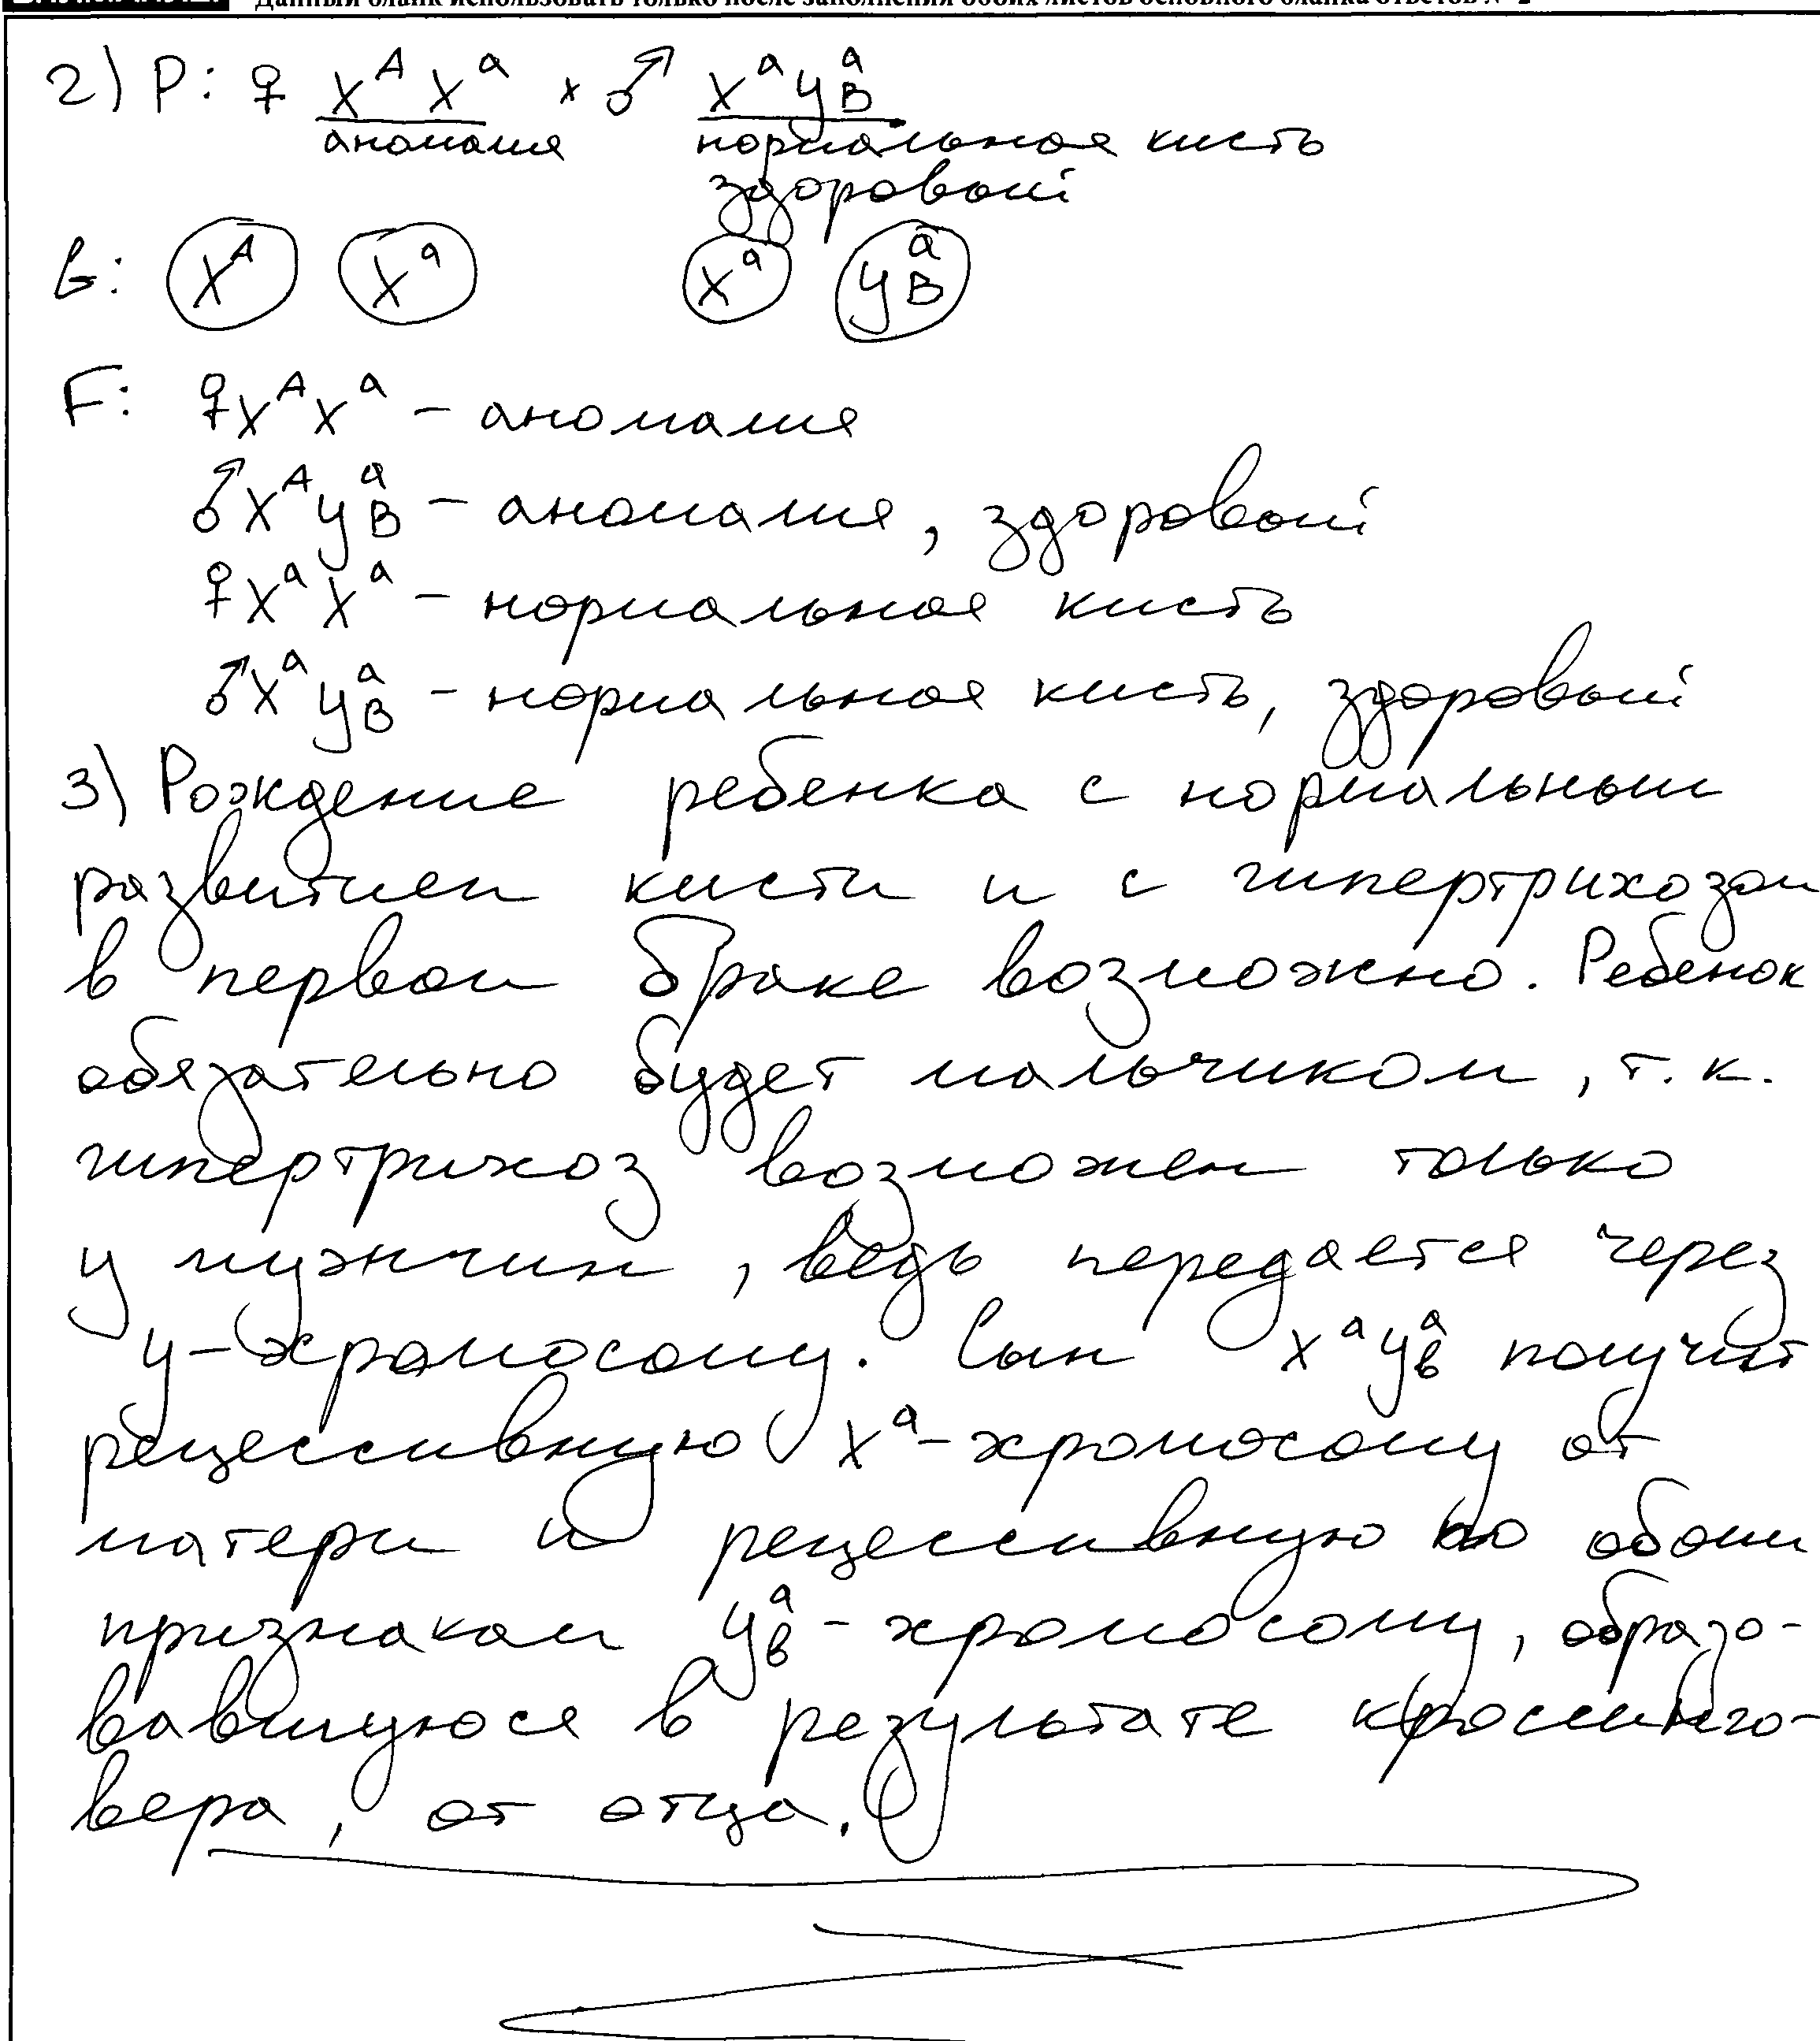 Данный бланк использовать только после заполнения обоих листов основного бланка ответов № 2
2) P: ♀ X^A X^a × ♂ X^a У_B^a
аномалия нормальная кисть
здоровый
G: X^A X^a X^a У_B^a
F: ♀X^A X^a – аномалия
♂X^A У_B^a – аномалия, здоровый
♀X^a X^a – нормальная кисть
♂X^a У_B^a – нормальная кисть, здоровый
3) Рождение ребенка с нормальным
развитием кисти и с гипертрихозом
в первом браке возможно. Ребенок
обязательно будет мальчиком, т.к.
гипертрихоз возможен только
у мужчин, ведь передается через
у-хромосому. Сын X^a У_в^a получит
рецессивную X^a-хромосому от
матери и рецессивную по обоим
признакам У_в^a-хромосому, образо-
вавшуюся в результате кроссинго-
вера, от отца.